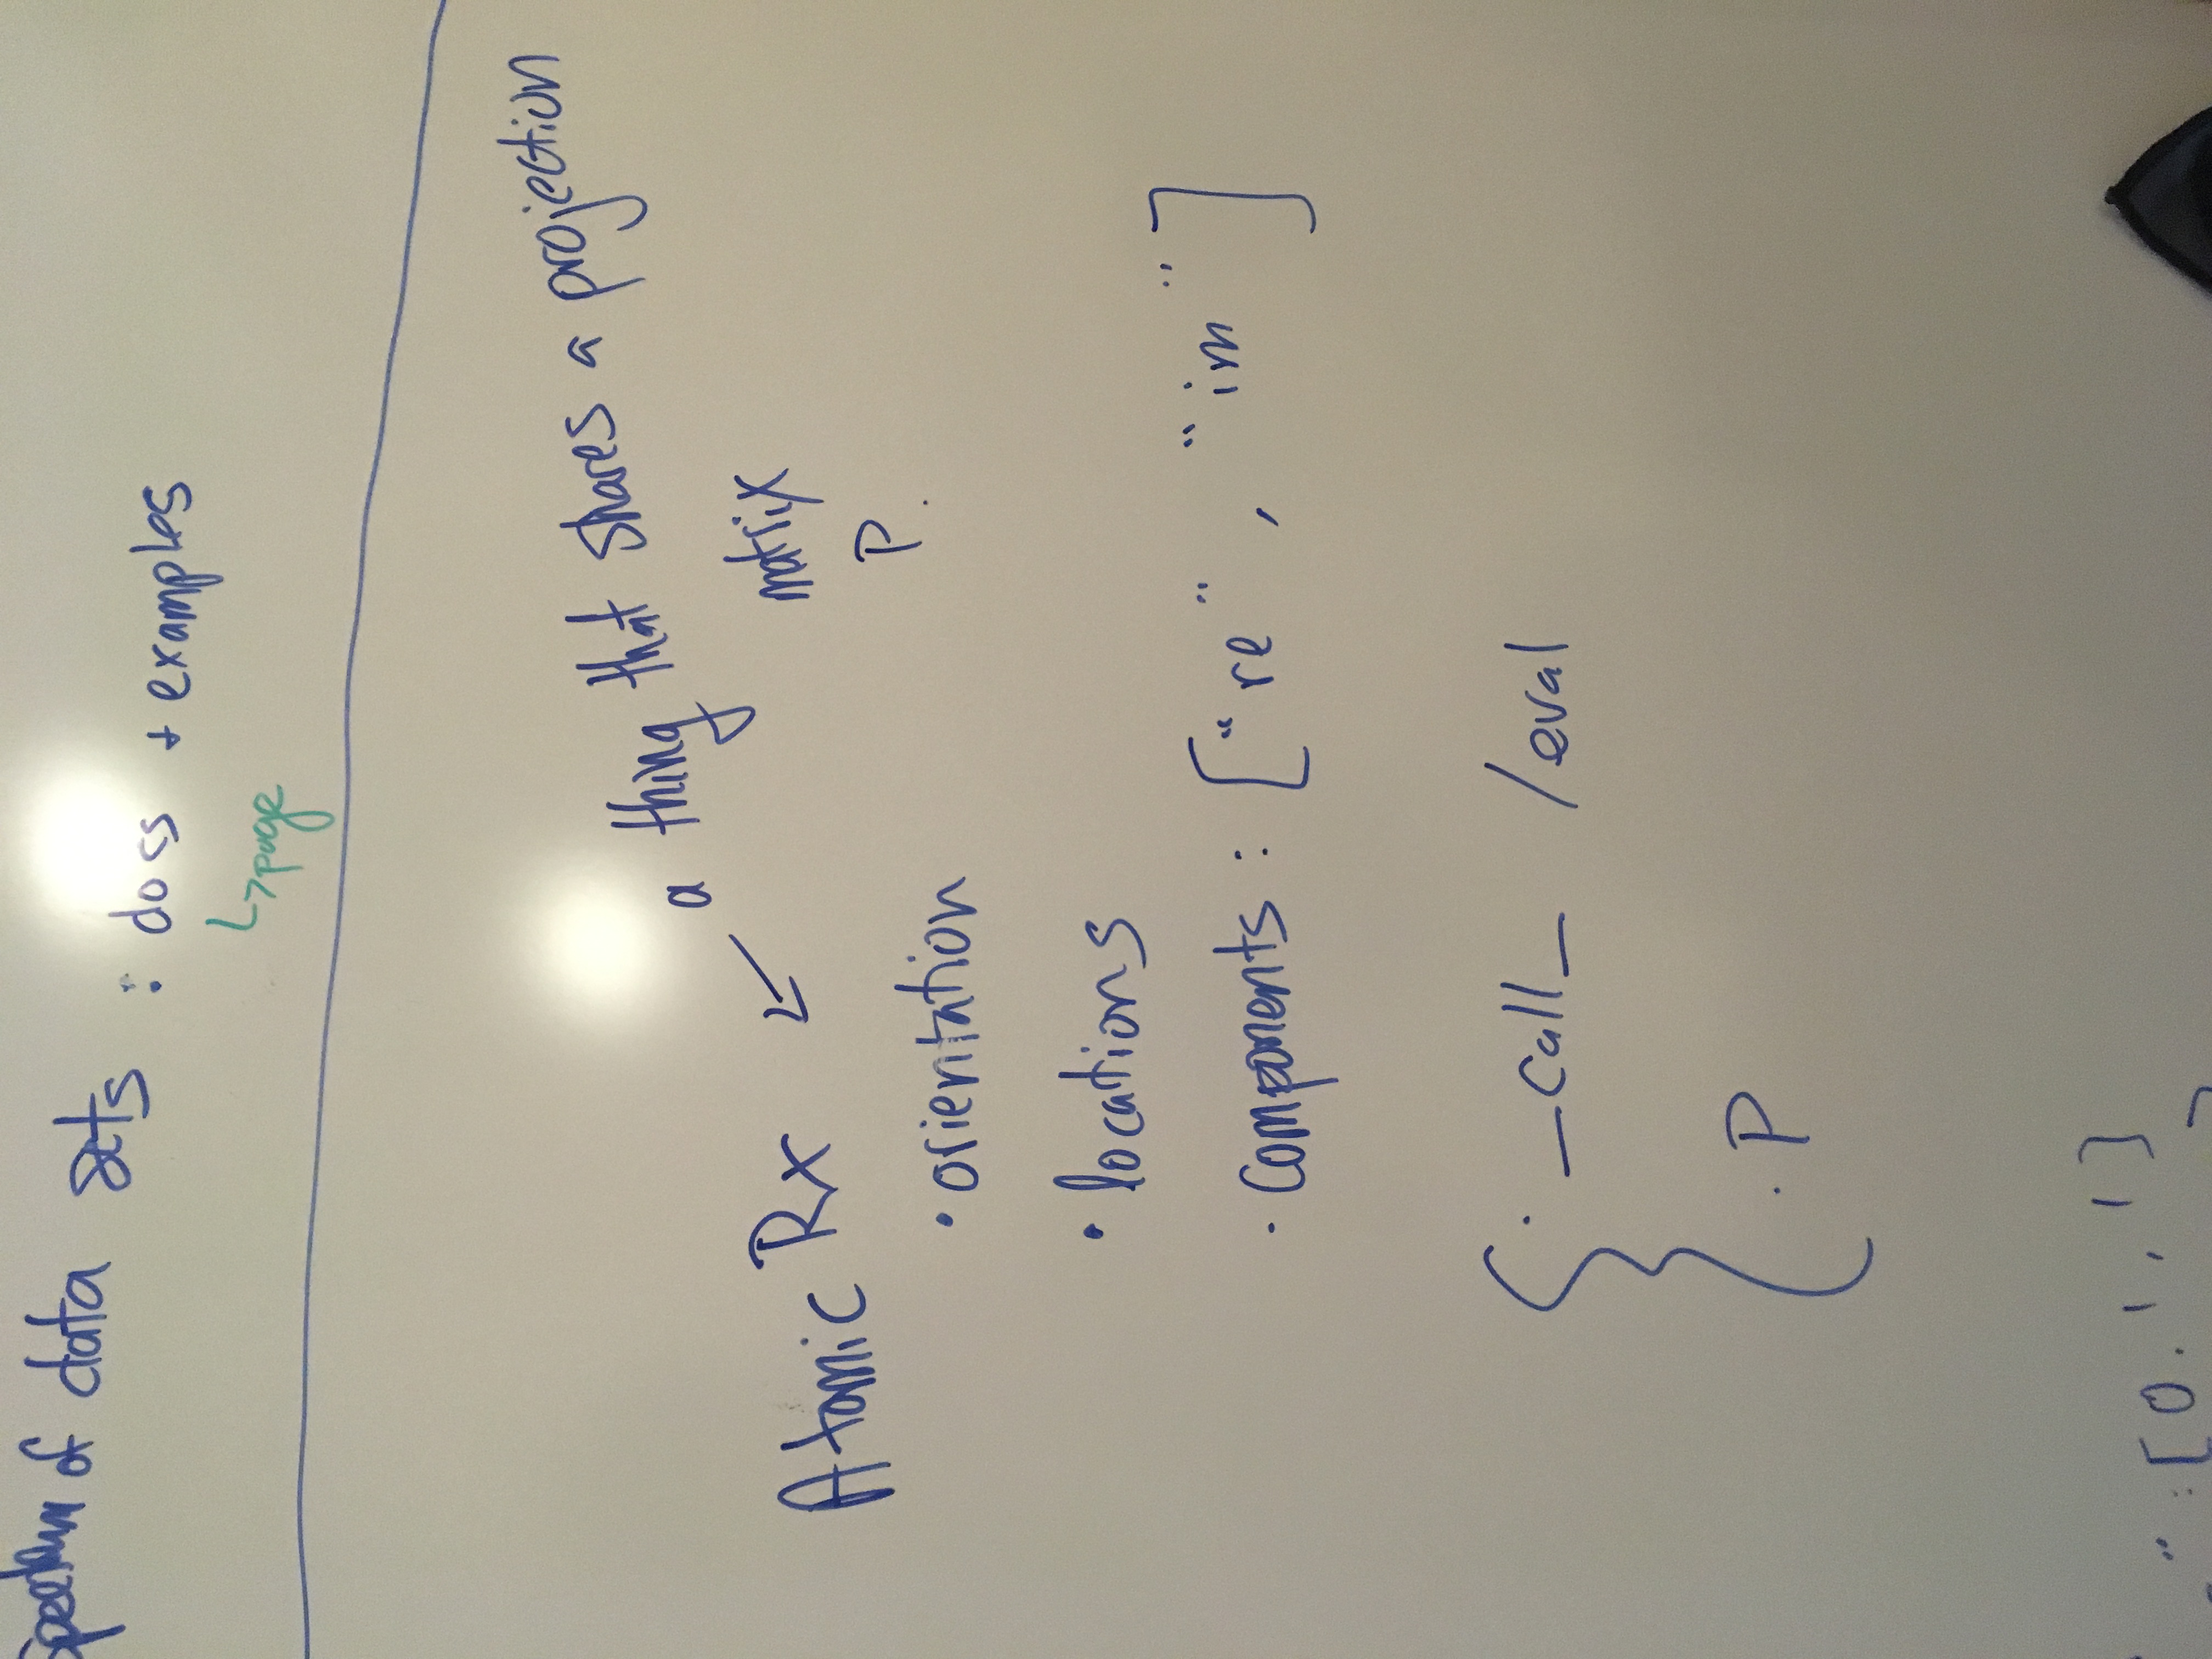 of data sets : docs + examples
↳ page
a thing that shares a projection
matrix
P.
Atomic Rx
• orientation
• locations
• components : ["re", "im"]
{ • _call_ /eval
. P
" : [0. 1, 1]